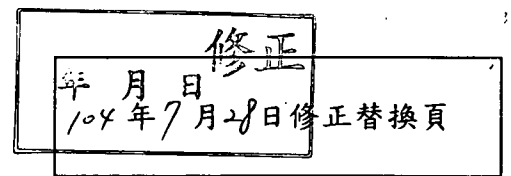 修正
年 月 日
104年7月28日修正替換頁